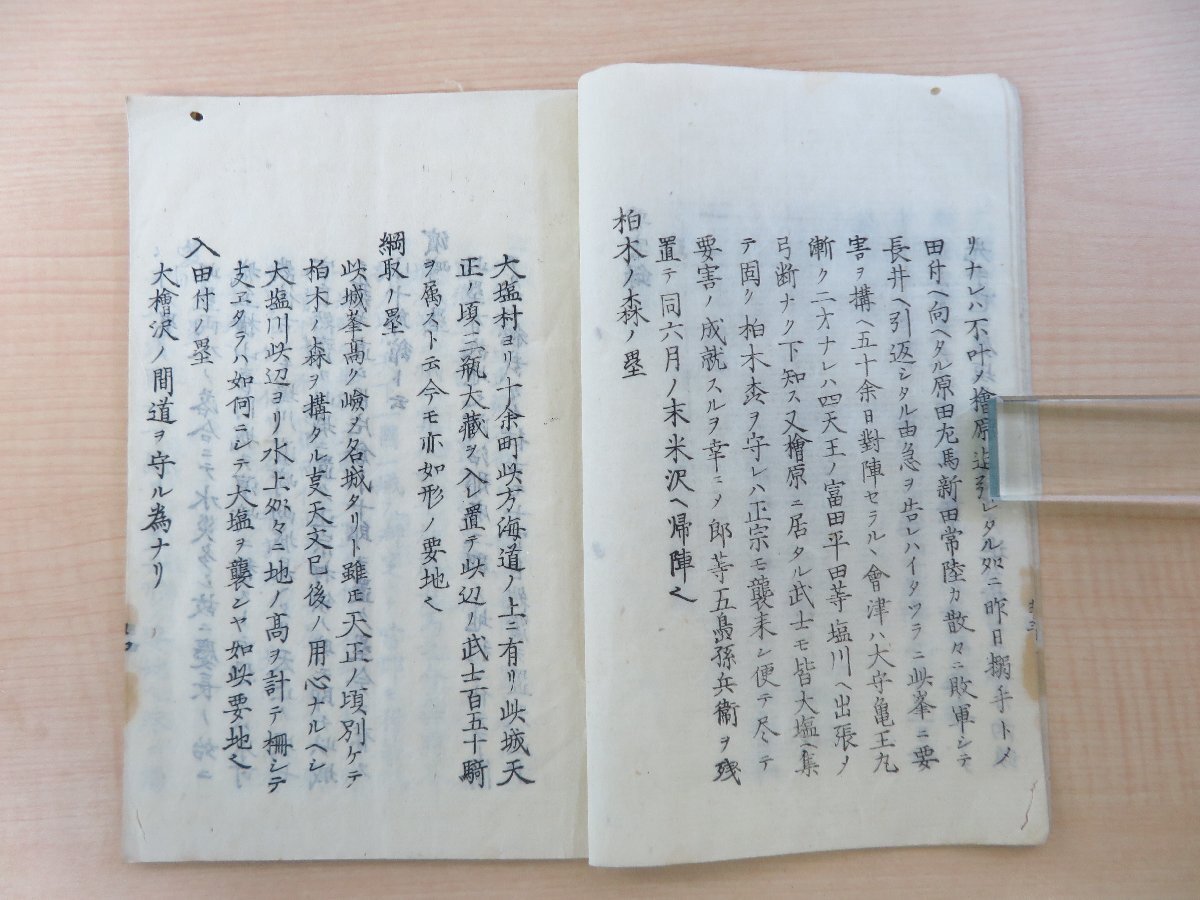 リナレハ不叶ノ檜原迠引レタル処ニ昨日搦手トメ
田付ヘ向ヘタル原田左馬新田常陸カ散々ニ敗軍シテ
長井ヘ引返シタル由急ヲ告レハイタツラニ此峯ニ要
害ヲ構ヘ五十余日對陣セラルヽ會津ハ大守亀王丸
漸ク二才ナレハ四天王ノ富田平田等塩川ヘ出張ノ
弓断ナク下知ス又檜原ニ居タル武士モ皆大塩ヘ集
テ固ク柏木森ヲ守レハ正宗モ襲来レ便テ尽テ
要害ノ成就スルヲ幸ニノ郎等五島孫兵衞ヲ残
置テ同六月ノ末米沢ヘ帰陣之
柏木ノ森ノ塁
大塩村ヨリ十余町此方海道ノ上ニ有リ此城天
正ノ頃三瓶大蔵ヲ入レ置テ此辺ノ武士百五十騎
ヲ属スト云今モ亦如形ノ要地之
綱取ノ塁
此城峯高ク嶮ノ名城タリト雖モ天正ノ頃別ケテ
柏木ノ森ヲ構タル叓天文已後ノ用心ナルヘシ
大塩川此辺ヨリ水上処々ニ地ノ高ヲ計テ柵シテ
支ヱタラハ如何ニシテ大塩ヲ襲シヤ如此要地之
入田付ノ塁
大檜沢ノ間道ヲ守ル為ナリ